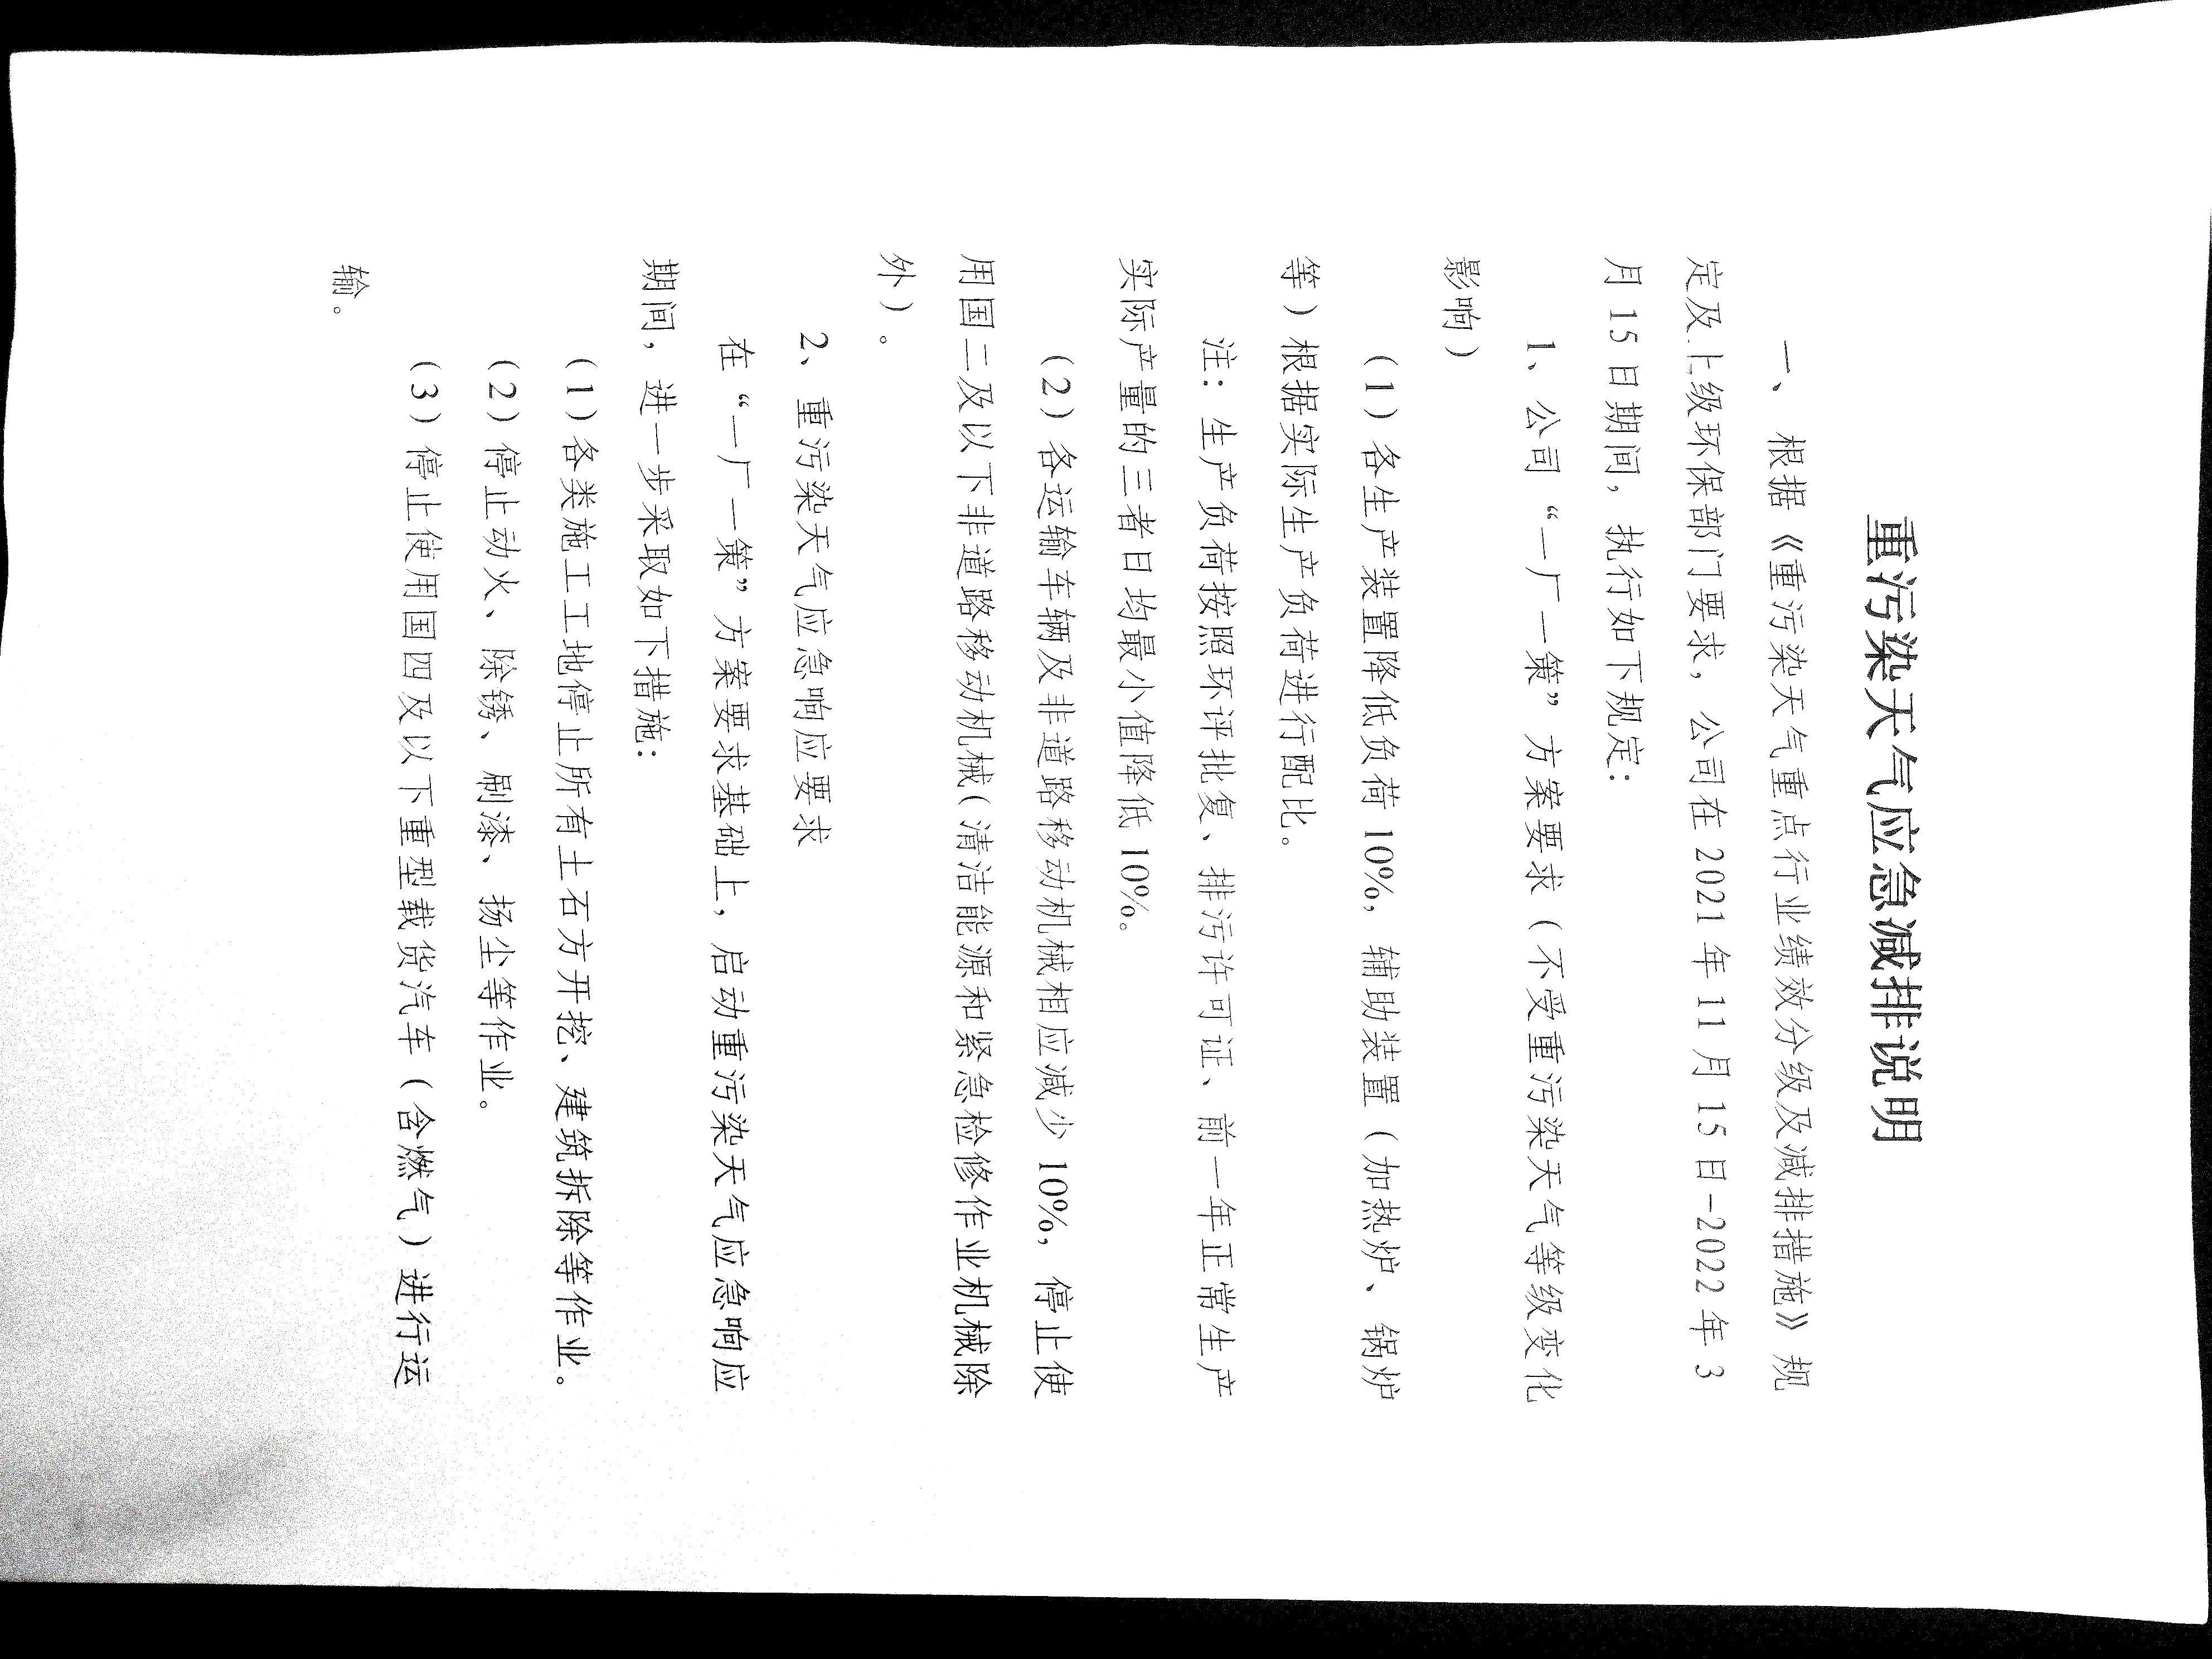 重污染天气应急减排说明
一、根据《重污染天气重点行业绩效分级及减排措施》规
定及上级环保部门要求，公司在 2021 年 11 月 15 日-2022 年 3
月 15 日期间，执行如下规定：
1、公司“一厂一策”方案要求（不受重污染天气等级变化
影响）
（1）各生产装置降低负荷 10%，辅助装置（加热炉、锅炉
等）根据实际生产负荷进行配比。
注：生产负荷按照环评批复、排污许可证、前一年正常生产
实际产量的三者日均最小值降低 10%。
（2）各运输车辆及非道路移动机械相应减少 10%，停止使
用国二及以下非道路移动机械（清洁能源和紧急检修作业机械除
外）。
2、重污染天气应急响应要求
在“一厂一策”方案要求基础上，启动重污染天气应急响应
期间，进一步采取如下措施：
（1）各类施工工地停止所有土石方开挖、建筑拆除等作业。
（2）停止动火、除锈、刷漆、扬尘等作业。
（3）停止使用国四及以下重型载货汽车（含燃气）进行运
输。